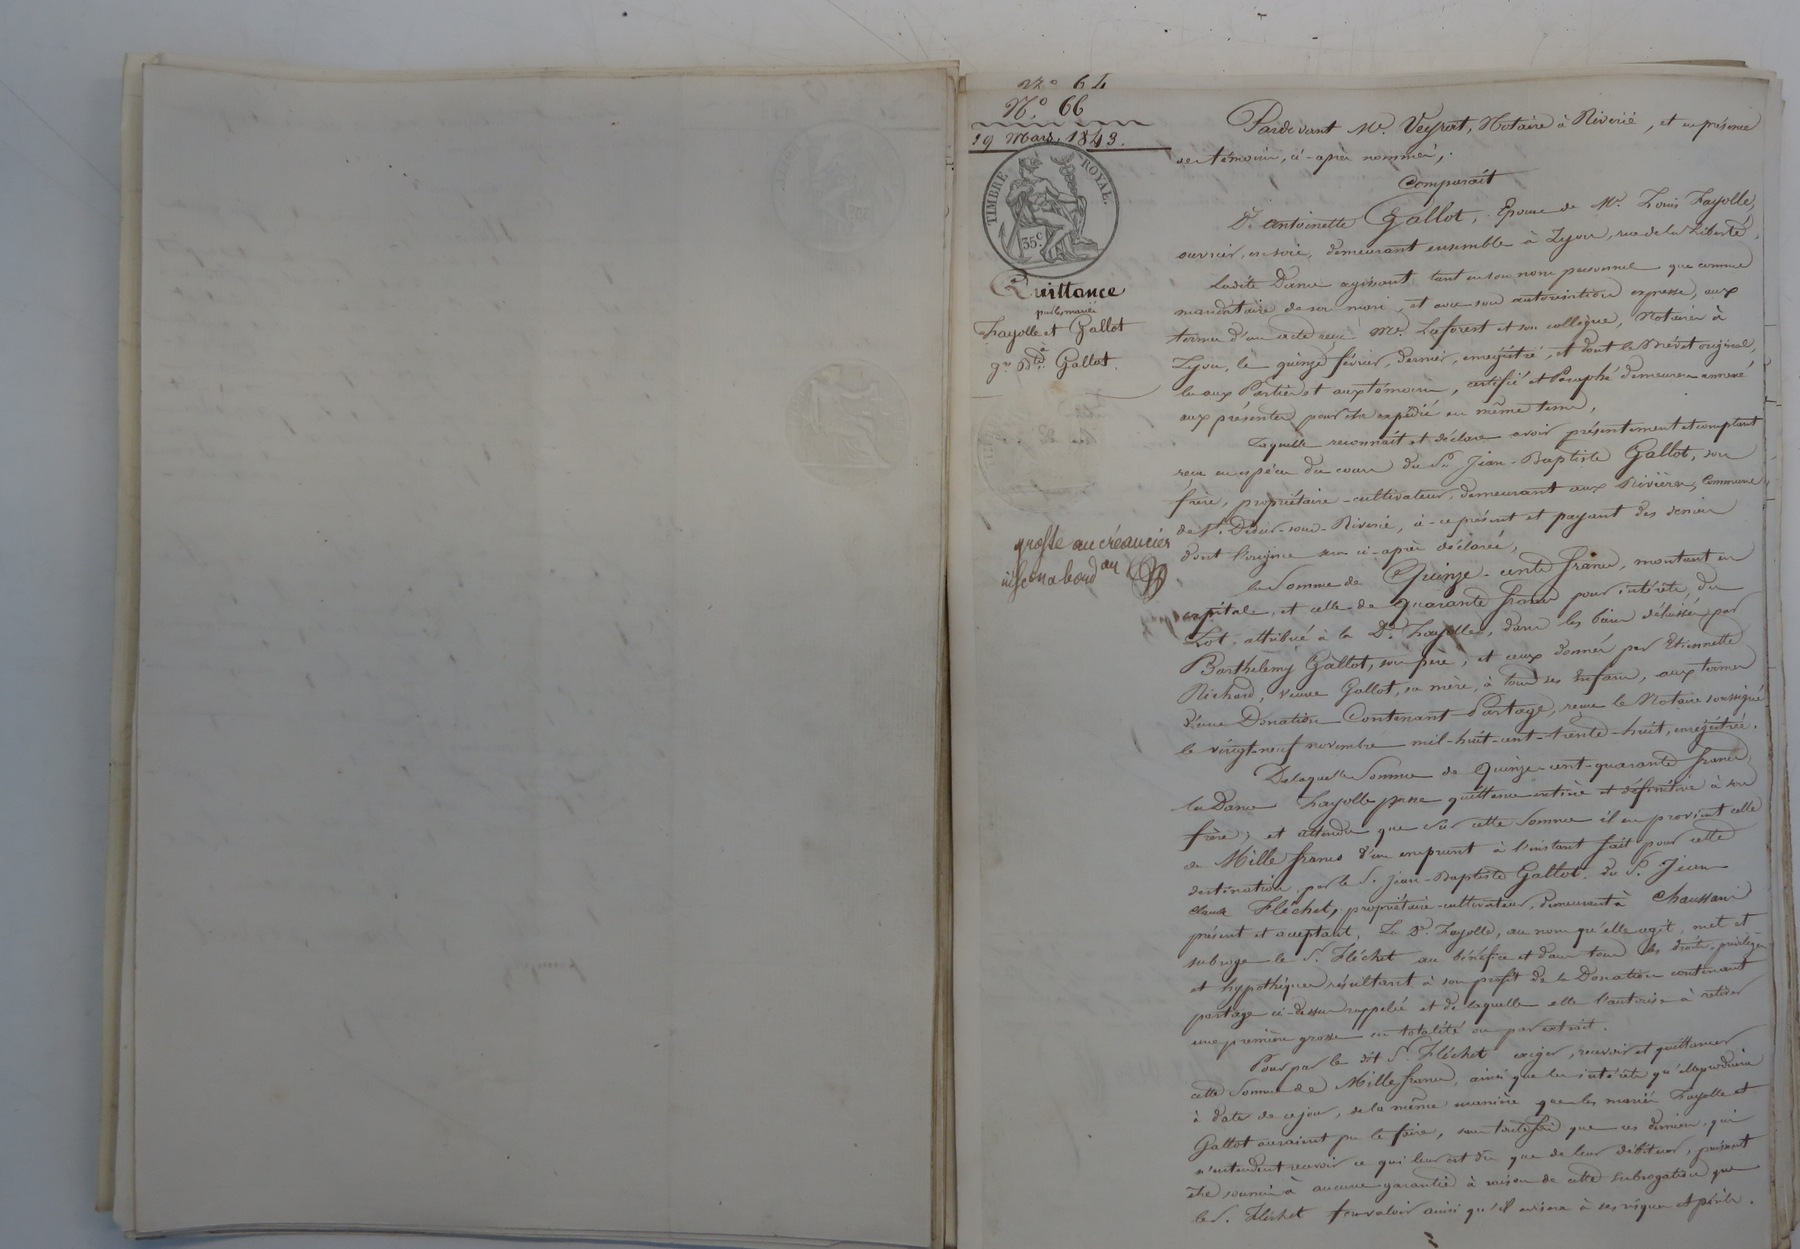 N.° 64
N.° 66
19 Mars, 1843.
TIMBRE ROYAL.
35c.
Quittance
par les mariés
Fayolle et Gallot
à
Jn Bte Gallot.
grosse au créancier
Pardevant Me. Veyrat, Notaire à Riverie, et en présence
des témoins, ci-après nommés,
Comparaît
De. Antoinette Gallot, Epouse de Mr. Louis Fayolle,
ouvrier, en soie, demeurant ensemble à Lyon, rue de la Liberté,
Ladite Dame agissant tant en son nom personnel que comme
mandataire de son mari, et avec son autorisation expresse, aux
termes d'un acte reçu Me. Laforest et son collègue, Notaires à
Lyon, le quinze février, dernier, enregistré, et dont le Brévet original,
lu aux Parties et aux témoins, certifié et Paraphé demeurera annexé
aux présentes pour être expédié en même tems,
Laquelle reconnaît et déclare avoir présentement et comptant
reçu en espèces du cours du Sr. Jean-Baptiste Gallot, son
frère, propriétaire-cultivateur, demeurant aux Rivières, Commune
de St. Didier-sous-Riverie, ci-ce présent et payant des deniers
dont l'origine sera ci-après déclarée,
la Somme de Quinze-cents francs, montant en
capital, et celle de quarante francs pour intérêts, du
Lot, attribué à la De. Fayolle, dans les biens délaissés par
Barthelemy Gallot, son père, et ceux donnés par Etiennette
Richard, veuve Gallot, sa mère, à tous ses Enfans, aux termes
d'une Donation Contenant Partage, reçue le Notaire soussigné
le vingt-neuf novembre mil-huit-cent-trente-huit, enregistrée.
De laquelle Somme de Quinze-cent-quarante francs
la Dame Fayolle passe quittance entière et définitive à son
frère; et attendu que sur cette Somme il en provient celle
de Mille francs d'un emprunt à l'instant fait pour cette
destination, par le S. Jean-Baptiste Gallot, du S. Jean
Claude Fléchet, propriétaire-cultivateur, demeurant à Chaussan
présent et acceptant, La De. Fayolle, au nom qu'elle agit, met et
subroge le S. Fléchet au bénéfice et dans tous les droits, privilèges
et hypothèques résultant à son profit de la Donation contenant
partage ci-dessus rappelée et de laquelle elle l'autorise à retirer
une première grosse en totalité ou par extrait.
Pour par le dit S. Fléchet exiger, recevoir et quittancer
cette Somme de Mille francs, ainsi que les intérêts qu'elle produira
à dater de ce jour, de la même manière que les mariés Fayolle et
Gallot auraient pu le faire, sans toutefois que ces derniers, qui
n'entendent recevoir ce qui leur est dû que de leur débiteur, puissent
être soumis à aucune garantie à raison de cette subrogation que
le S. Fléchet fera valoir ainsi qu'il avisera à ses risques et périls.